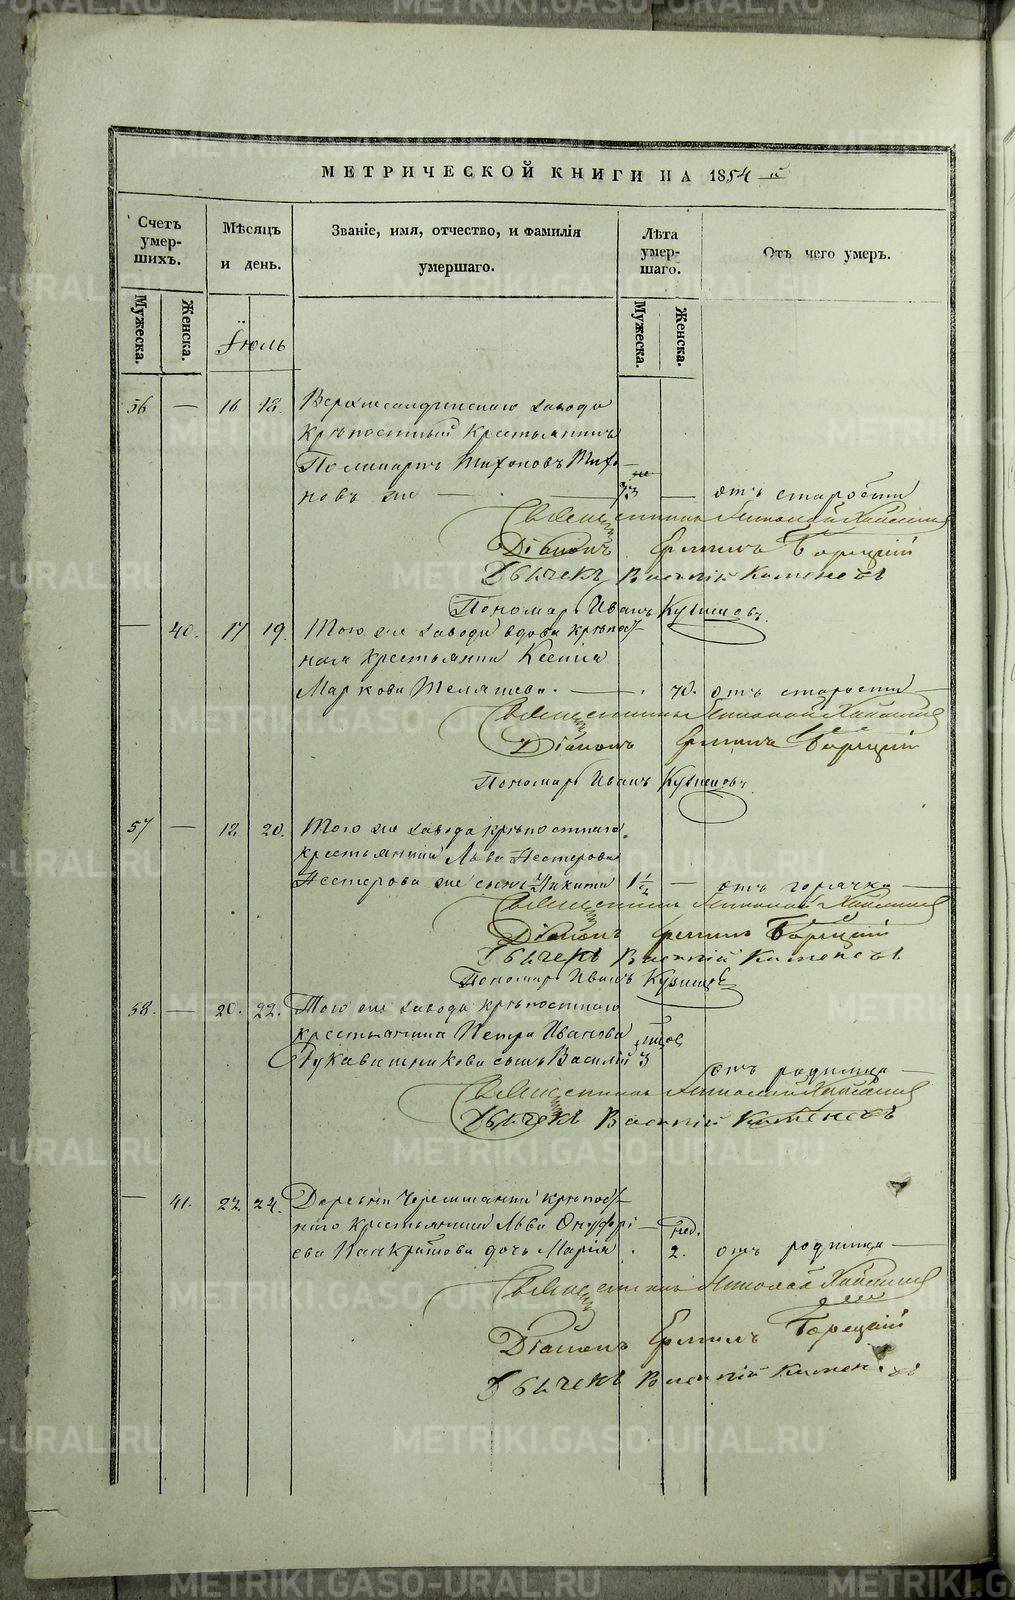 МЕТРИЧЕСКОЙ КНИГИ НА 1854-й
Счетъ умер- шихъ.
Мѣсяцъ и день.
Званіе, имя, отчество, и фамилія умершаго.
Лѣта умер- шаго.
Отъ чего умеръ.
Мужеска.
Женска.
Мужеска.
Женска.
Іюль
56 — 16 18. Верхнесалдинскаго завода
крѣпостный крестьянинъ
Тихоновъ Тихо-
новъ же — 73 — отъ старости
Священникъ Николай
Діаконъ Ермилъ Борецкій
Дьячекъ Василій Каменевъ
Пономарь Иванъ Кузнецовъ.
— 40. 17 19. Того же завода вдова крѣпост-
ная крестьянка Ксенія
Маркова — 70. отъ старости
Священникъ Николай
Діаконъ Ермилъ Борецкій
Пономарь Иванъ Кузнецовъ
57 — 18 20. Того же завода крѣпостнаго
крестьянина Льва Нестерова
Нестерова же сынъ Никита 1 1/2 — отъ горячки —
Священникъ Николай
Діаконъ Ермилъ Борецкій
Дьячекъ Василій Каменевъ
Пономарь Иванъ Кузнецовъ
58. — 20. 22. Того же завода крѣпостнаго
крестьянина Петра Иванова
Рукавишникова сынъ Василій 3 отъ родимца —
Священникъ Николай
Дьячекъ Василій Каменевъ
— 41. 22 24. Деревни крѣпост-
наго крестьянина Льва Онуфрі-
ева Панкратова дочь Марія . нед. 2. отъ родимца —
Священникъ Николай
Діаконъ Ермилъ Борецкій
Дьячекъ Василій Каменевъ
METRIKI.GASO-URAL.RU